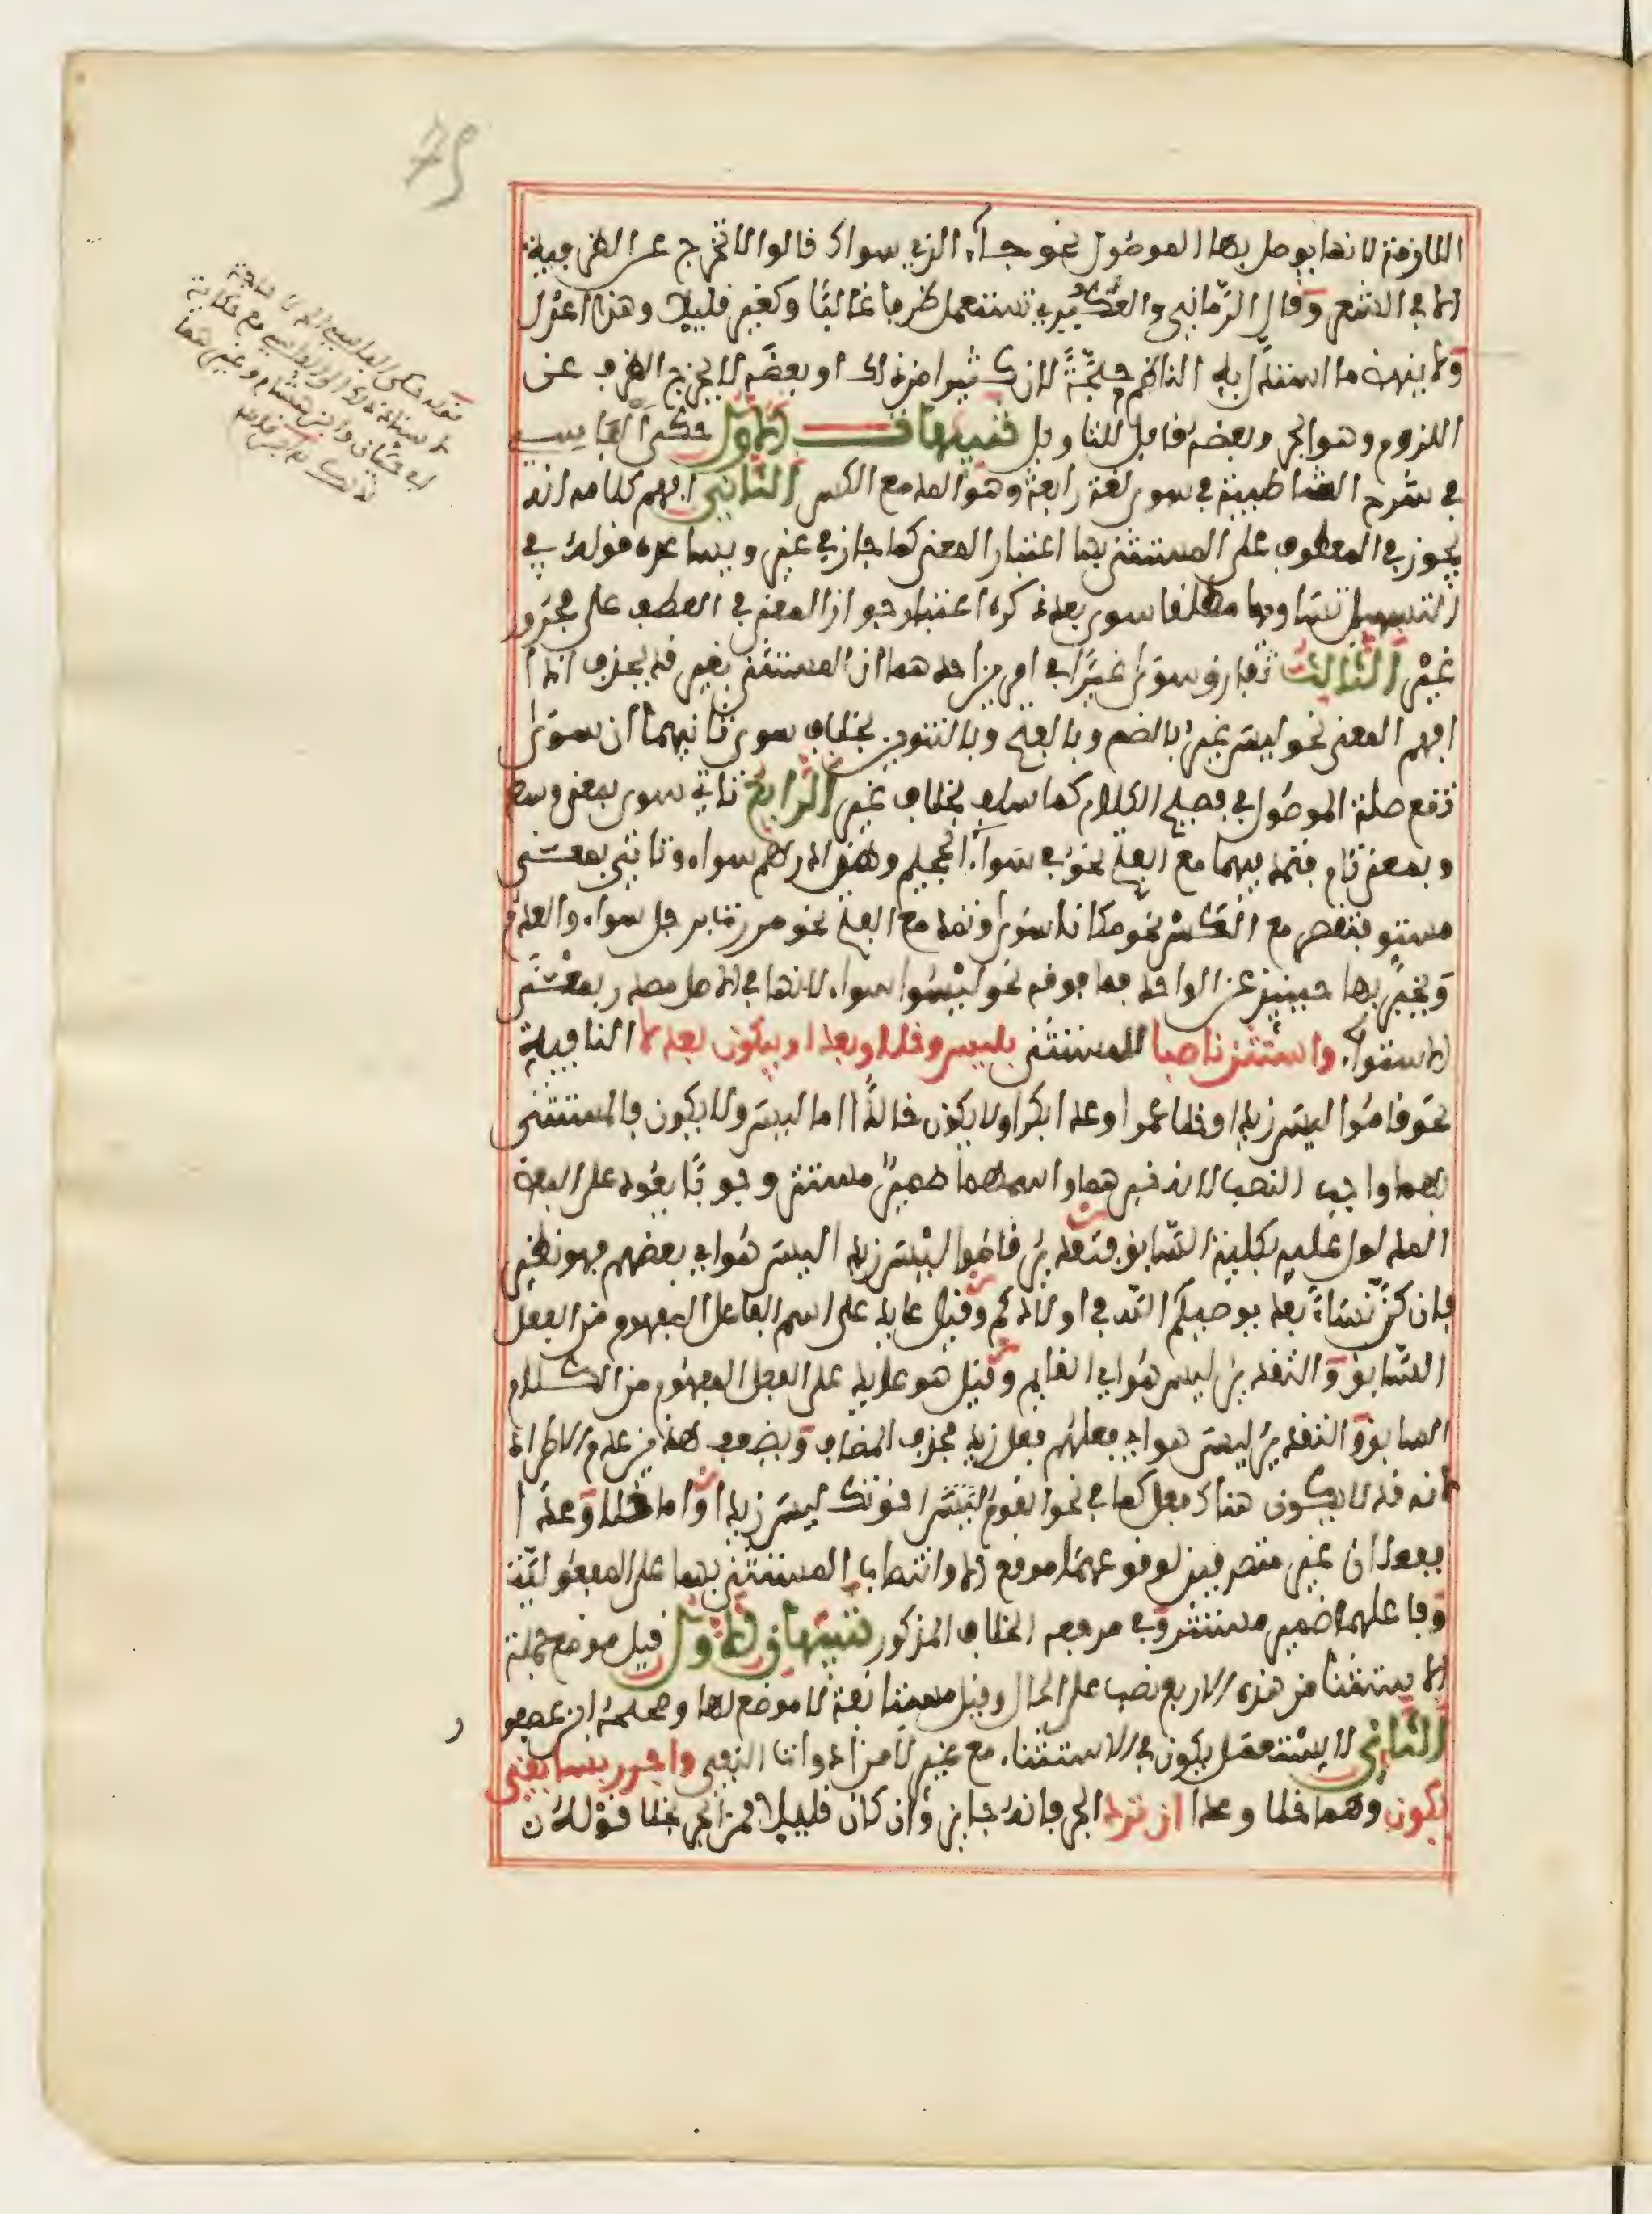 اللازمة لانها يوصل بها الموصول نحو جاء الذي سواك قالوا لا تخرج عن الظرفية
الا في الشعر وقال الرماني والعكبري تستعمل ظرفا غالبا وكغير قليلا وهذا اعدل
ولا ينهض ما استدل به الناظم حجة لان كثيرا من ذلك او بعضه لا يخرج الظرف عن
اللزوم وهو الجر وبعضه قابل للتاويل تنبيهات الاول حكى الفاسي
في شرح الشاطبية في سوى لغة رابعة وهو المد مع الكسر الثاني افهم كلامه انه
يجوز في المعطوف على المستثنى بها اعتبار المعنى كما جاز في غير ويساعده قوله في
التسهيل تساويها مطلقا سوى بعد ذكره اعتبار جواز المعنى في العطف على مجرور
غير الثالث تفارق سوى غيرا في امرين احدهما ان المستثنى بغير قد يحذف اذا
افهم المعنى نحو ليس غير بالضم وبالفتح وبالتنوين بخلاف سوى ثانيهما ان سوى
تقع صلة الموصول في فصيح الكلام كما سلف بخلاف غير الرابع تاتي سوى بمعنى وسط
وبمعنى تام فتمد فيهما مع الفتح نحو في سواء الجحيم وهذا درهم سواء وتاتي بمعنى
مستو فتقصر مع الكسر نحو مكانا سوى وتمد مع الفتح نحو مررت برجل سواء والعدم
ويخبر بها حينئذ عن الواحد فما فوقه نحو ليسوا سواء لانها في الاصل مصدر بمعنى
الاستواء واستثن ناصبا للمستثنى بليس وخلا وبعدا وبيكون بعد لا النافية
نحو قاموا ليس زيدا وخلا عمرا وعدا بكرا ولا يكون خالدا اما ليس ولا يكون فالمستثنى
بهما واجب النصب لانه خبرهما واسمهما ضمير مستتر وجوبا يعود على البعض
المدلول عليه بكليه السابق فتقدير قاموا ليس زيدا ليس هو اي بعضهم فهو نظير
فان كن نساء بعد يوصيكم الله في اولادكم وقيل عايد على اسم الفاعل المفهوم من الفعل
السابق والتقدير ليس هو اي القايم وقيل هو عايد على الفعل المفهوم من الكلام
السابق والتقدير ليس هو اي فعلهم فعل زيد فحذف المضاف ويضعف هذين عدم الاطراد
لانه قد لا يكون هناك فعل كما في نحو القوم اخوتك ليس زيدا واما خلا وعدا
ففعلان غير متصرفين لوقوعهما موقع الا وانتصاب المستثنى بهما على المفعولية
وفاعلهما ضمير مستتر وفي مرجعه الخلاف المذكور تنبيهان الاول قيل موضع جملة
الاستثنا من هذه الاربع نصب على الحال وقيل مستانفة لا موضع لها وصححه ابن عصفور
الثاني لا يستعمل يكون في الاستثناء مع غير لا من ادوات النفي واجرر بسابقي
يكون وهما خلا وعدا ان ترد الجر فانه جايز وان كان قليلا فمن الجر بخلا قوله